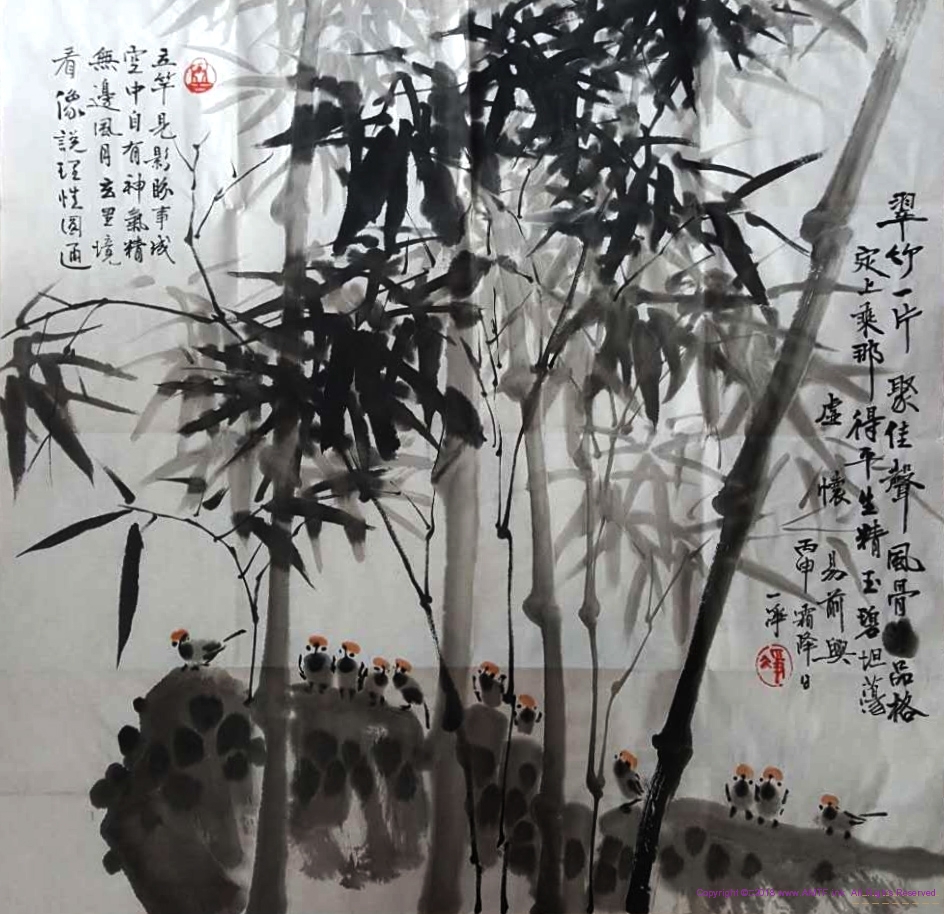 翠竹一片 聚佳聲 風骨 品格
定上乘那得平生精玉碧坦蕩
虛懷
易前興
丙申霜降日
一淨
五竿見影勝事成
空中自有神氣精
無邊風月玄墨境
看像說理性圓通
Copyright © All Rights Reserved